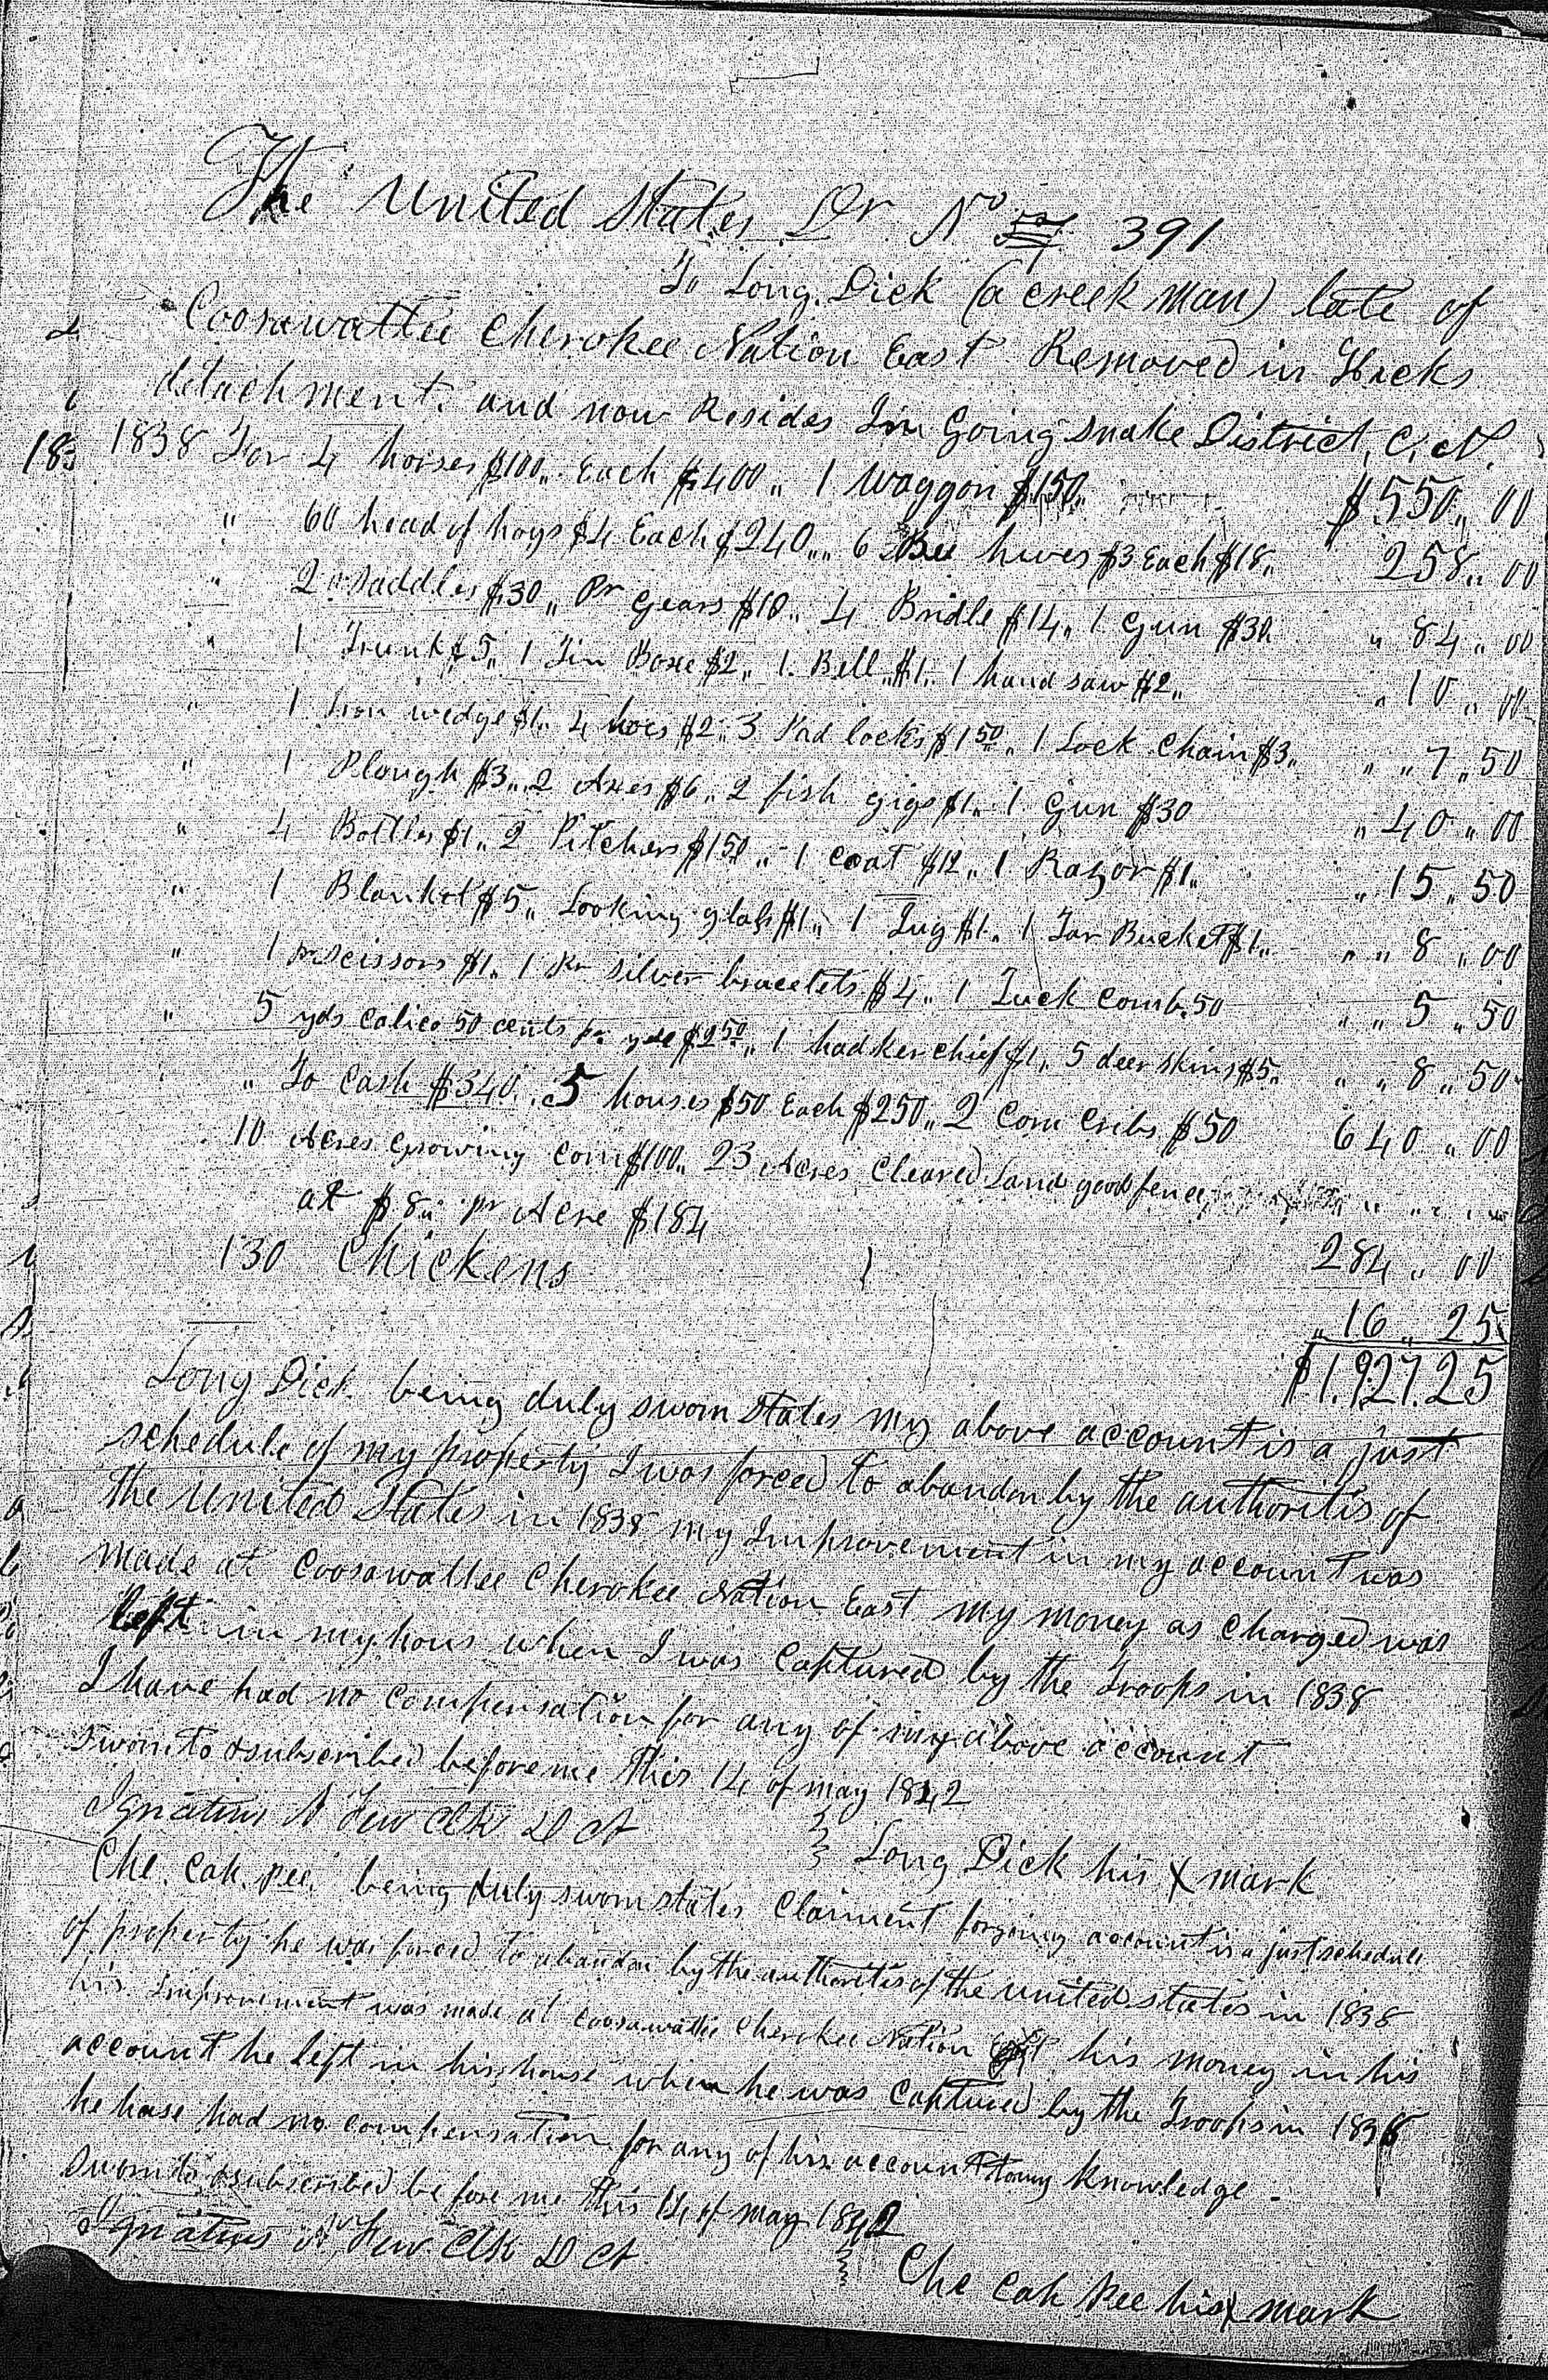 The United States Dr No 391
To Long Dick (a creek man) late of
Coosawattee Cherokee Nation East Removed in Hicks
detachment. and now Resides In Going snake District, C, N.
1838 For 4 horses $100,, Each $400,, 1 Waggon $150,, $550,, 00
" 60 head of hogs $4 Each $240,,,, 6 Bee hives $3 Each $18,, 258,, 00
" 2 Saddles $30,, Pr Gears $10,, 4 Bridle $14,, 1 Gun $30 " 84,, 00
" 1 Trunk $5,, 1 Tin Boxe $2,, 1 Bell,, $1,, 1 hand saw $2,, " 10,, 00
" 1 Iron wedge $1,, 4 hoes $2,, 3 Pad locks $1 50,, 1 Lock Chain $3,, " " 7,, 50
" 1 Plough $3,,,, 2 Axes $6,, 2 fish gigs $1,, 1 Gun $30 " 40,, 00
" 4 Bottles $1,, 2 Pitchers $1 50,, 1 coat $12,, 1 Razor $1,, " 15,, 50
" 1 Blanket $5,, Looking glass $1,, 1 Jug $1,, 1 Tar Bucket $1,, " " 8,, 00
" 1 pr scissors $1,, 1 Pr silver bracelets $4,, 1 Tuck Comb.50 " " 5,, 50
" 5 yds calico 50 cents pr yd $2 50,, 1 hadkerchief $1,, 5 deer skins $5,, " " 8,, 50
" To Cash $340,, 5 houses $50 Each $250,, 2 Corn Cribs $50 640,, 00
10 Acres growing Corn $100,, 23 Acres Cleared Land good fence,
at $8,, pr Acre $184 284,, 00
130 Chickens " 16,, 25
$1,927.25
Long Dick being duly sworn states my above account is a just
schedule of my property I was forced to abandon by the authoritis of
the United States in 1838 my Improvement in my account was
made at Coosawattee Cherokee Nation East my money as charged was
left in my hous when I was Captured by the Troops in 1838
I have had no compensation for any of my above account
Sworn to & subscribed before me this 14 of may 1842
Ignatius A Few Clk D Ct
Long Dick his X mark
Che. Cah. pee. being duly sworn states Claiment forgoing account is a just schedule
of property he was forced to abandon by the authoritis of the united states in 1838
his Improvement was made at Coosawattie Cherokee Nation East his money in his
account he left in his house when he was Captured by the Troops in 1838
he hase had no compensation for any of his account to my knowledge -
Sworn to & subscribed before me this 14 of may 1842
Ignatius A Few Clk D Ct
Che Cah Pee his X mark